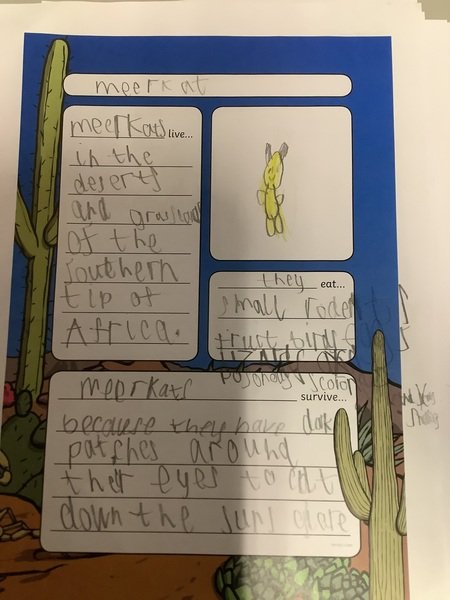 meerkat
meerkats live...
in the
deserts
and grasslands
of the
southern
tip of
Africa.
they eat...
small rodents
fruit, birds
lizards
poisonous scor
meerkats survive...
because they have dark
patches around
their eyes to cut
down the suns glare